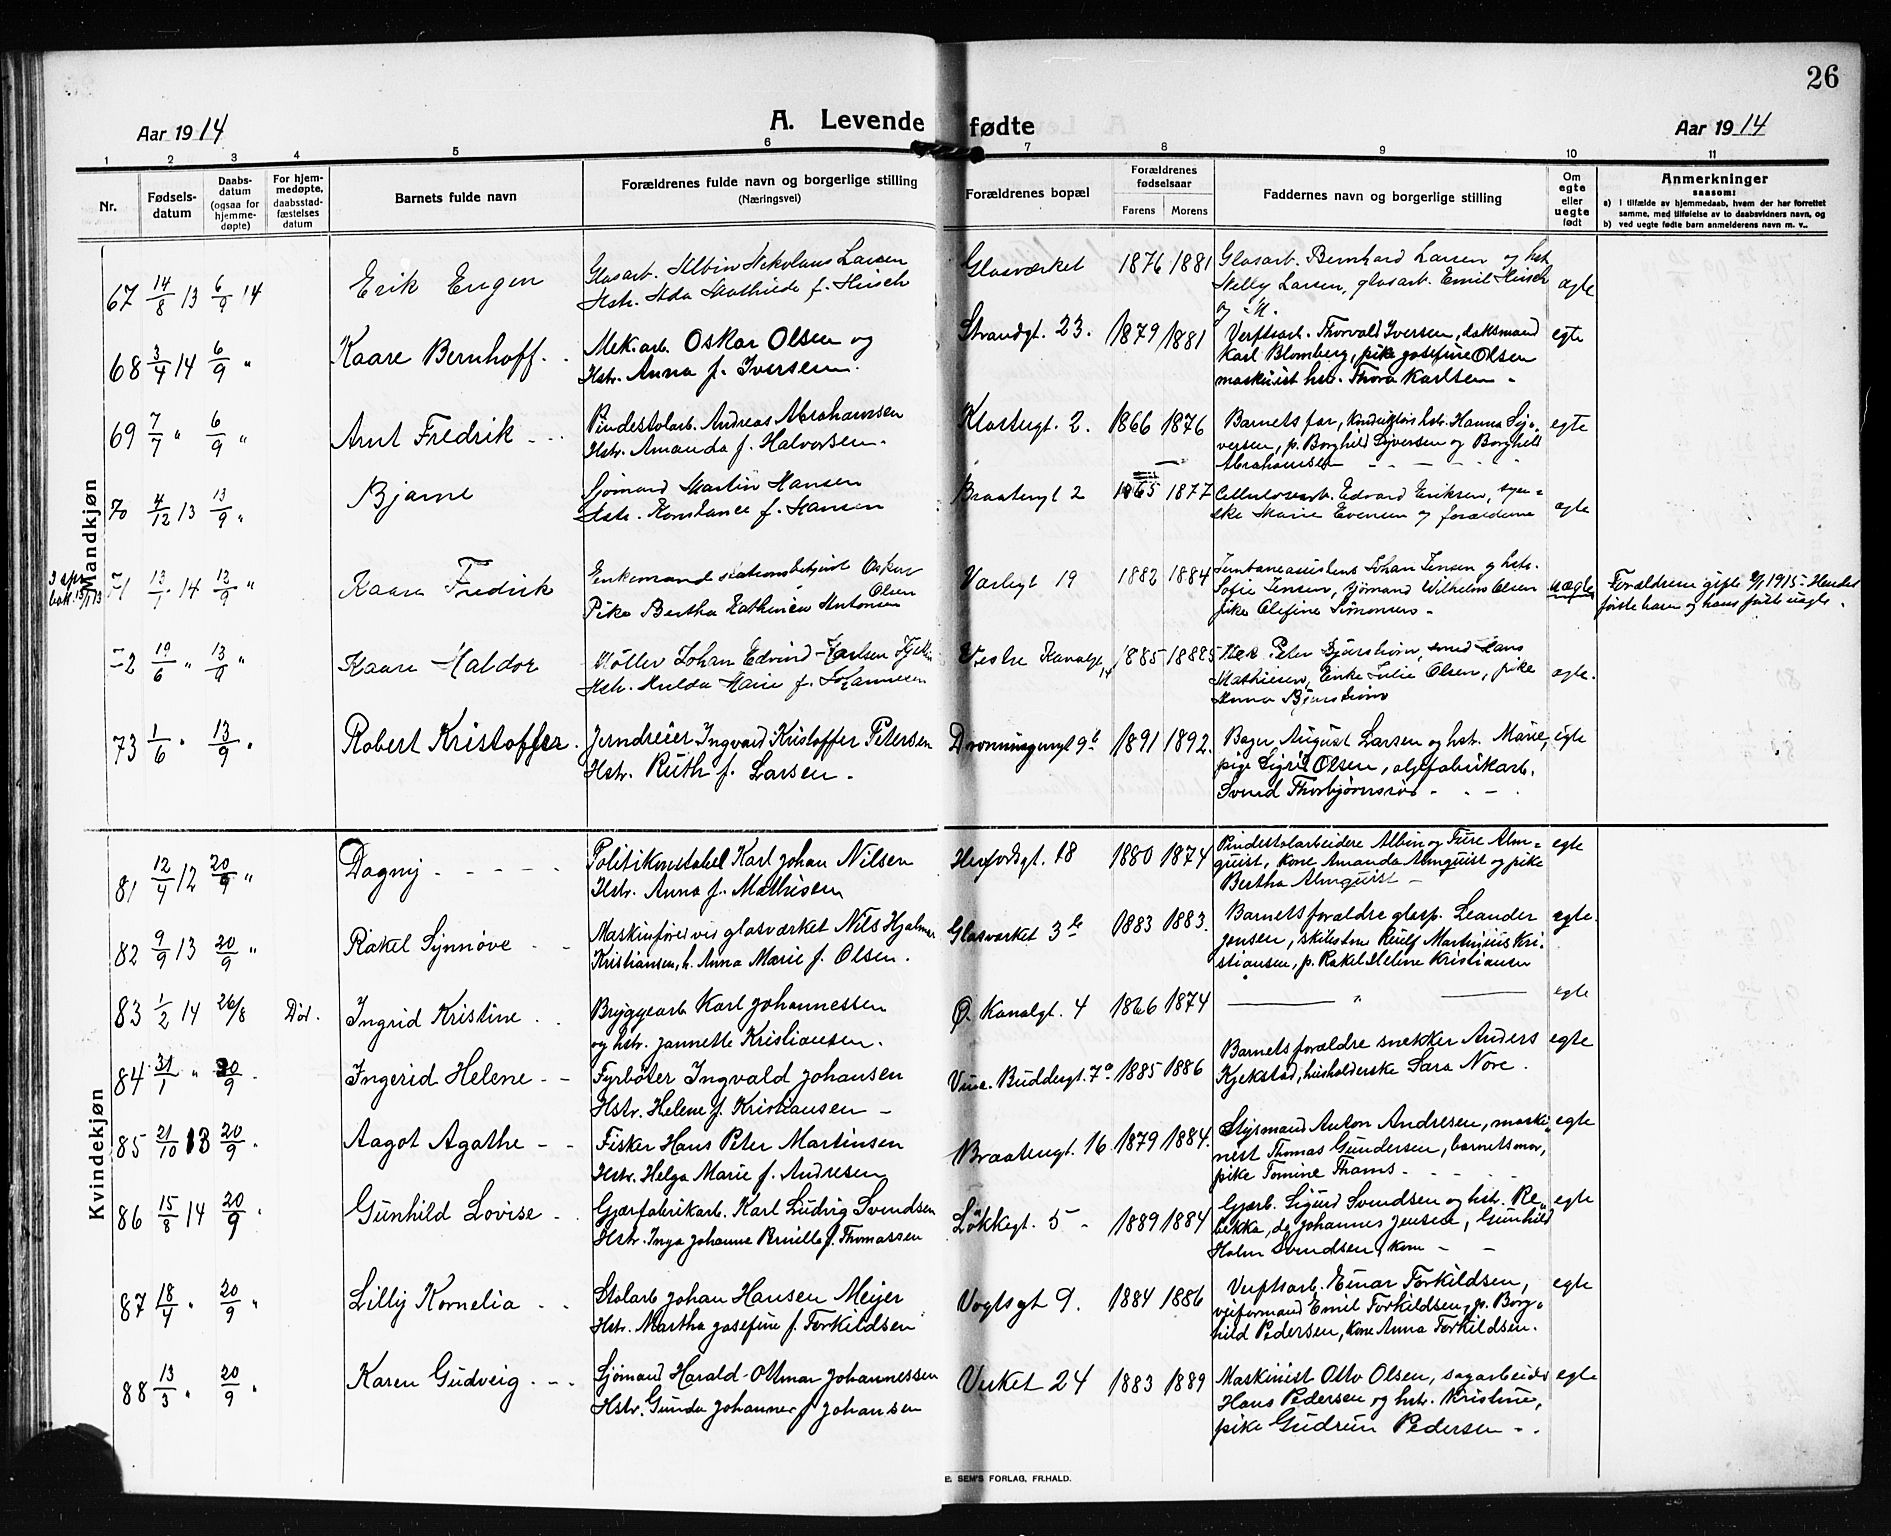 26
Aar 1914
A. Levende fødte
Aar 1914
1 2 3 4 5 6 7 8 9 10 11
Nr.
Fødsels-
datum
Daabs-
datum
(ogsaa for
hjemme-
døpte)
For hjem-
medøpte,
daabsstad-
fæstelses
datum
Barnets fulde navn
Forældrenes fulde navn og borgerlige stilling
(Næringsvei)
Forældrenes bopæl
Forældrenes
fødselsaar
Farens Morens
Faddernes navn og borgerlige stilling
Om
egte
eller
uegte
født
Anmerkninger
saasom:
a) i tilfælde av hjemmedaab, hvem der har forrettet
samme, med tilføielse av to daabsvidners navn, og
b) ved uegte fødte barn anmelderens navn m. v..
Mandkjøn
67 14/8 13 6/9 14 Erik Engen Glasarb. Albin Nikolaus Larsen Glasværket 1876 1881 Glasarb. Bernhard Larsen og hst
Hstr. Ada Mathilde f. Hirsch Nelly Larsen, glasarb. Emil Hirsch ægte
68 3/4 14 6/9 " Kaare Bernhoff. Mek.arb. Oskar Olsen og Strandgt. 23. 1879 1881 Verftsarb. Thorvald Iversen, daksmand egte
Hstr. Anna f. Iversen. Karl Blomberg, pike Josefine Olsen
maskinist hst. Thora Karlsen -
69 7/7 " 6/9 " Arnt Fredrik Pindestolarb. Andreas Abrahamsen Klostergt. 2. 1866 1876 Barnets far, hstr. Hanna Sy- egte
Hstr. Amanda f. Halvorsen. versen, p. Borghild Syversen og Borghild
Abrahamsen
70 4/12 13 13/9 " Bjarne Sjømand Martin Hansen Braatengt 2 1865 1877 Cellulosearb. Edvard Eriksen, syer-
Hstr. Konstance f. Hansen ske Marie Evensen og forældrene ægte
3 apr
71 13/1 14 13/9 " Kaare Fredrik Enkemand stationsbetjent Oskar Varlegt 19 1882 1884 Johan Jensen og hstr.
Olsen
Pike Bertha Kathinca Antonsen Sofie Jensen, sjømand Wilhelm Olsen uægte
pike Olefine Simonsen -
Forældrene gifte 1915 - Hendes
første barn og hans første uægte.
72 19/6 " 13/9 " Kaare Haldor Johan Edvind Karlsen Vestre Kanalgt. 14 1885 1888 Peter Bjurstrøm, smed Hans
Hstr. Hulda Marie f. Johannesen Mathiesen, Enke Julie Olsen, pike ægte.
Anna Bjurstrøm
73 1/6 " 13/9 " Robert Kristoffer. Jerndreier Ingvard Kristoffer Petersen Dronningensgt 9b 1891 1892. Bager August Larsen og hst. Marie, egte
Hstr. Ruth f. Larsen - pige Sigrid Olsen, oljefabrikarb.
Svend Thorbjørnsrød -
Kvindekjøn
81 12/4 12 20/9 " Dagny Politikonstabel Karl Johan Nilsen Herfordsgt. 18 1880 1874 Pindestolarbeidere Albin og Ture Alm= egte
Hstr. Anna f. Mathisen quist, kone Amanda Almquist og pike
Bertha Almquist -
82 9/9 13 20/9 " Rakel Synnøve Maskinfører ved glasværket Nils Hjalmar Glasværket 3b 1883 1883. Barnets forældre glasp. Leander egte.
Kristiansen, h. Anna Marie f. Olsen. Jensen, Martinius Kri-
stiansen, p. Rakel Helene Kristiansen
83 1/2 14 26/8 Død. Ingrid Kristine Bryggearb Karl Johannessen Ø. Kanalgt. 4 1866 1874 " egte
og hstr. Jannette Kristiansen.
84 31/1 " 20/9 . Ingerid Helene Fyrbøter Ingvald Johansen Vinc. Buddesgt. 7a 1885 1886 Barnets forældre snekker Anders egte
Hstr. Helene f. Kristiansen - Kjekstad, husholderske Sara Nore.
85 21/10 13 20/9 . Aagot Agathe Fisker Hans Peter Martinsen Braatengt. 16 1879 1884. Styrmand Anton Andresen, maski- egte
Hstr. Helga Marie f. Andresen nest Thomas Gundersen, barnets mor,
pike Tomine Thams.
86 15/8 14 20/9 . Gunhild Lovise Gjærfabrikarb. Karl Ludvig Svendsen Løkkegt. 5 - 1889 1884 Gjærb. Sigurd Svendsen og hst. Re- egte
Hstr. Inga Johanne Pernille f. Thomassen bekka, do Johannes Jensen, Gunhild
Holm Svendsen, kone -
87 18/4 " 20/9 " Lilly Kornelia Stolarb Johan Hansen Meijer Vogtsgt 9. 1884 1886 Verftsarb. Einar Torkildsen, egte
Hstr. Martha Josefine f. Torkildsen veiformand Emil Torkildsen, p. Borg-
hild Pedersen, kone Anna Torkildsen.
88 13/3 " 20/9 . Karen Gudveig Sjømand Harald Ottmar Johannessen Verket 24 1883 1889 Maskinist Otto Olsen, sagarbeider egte
Hstr. Gunda Johanne f Johansen Hans Pedersen og hstr. Kristine,
pike Gudrun Pedersen - .
E. SEM'S FORLAG, FR.HALD.